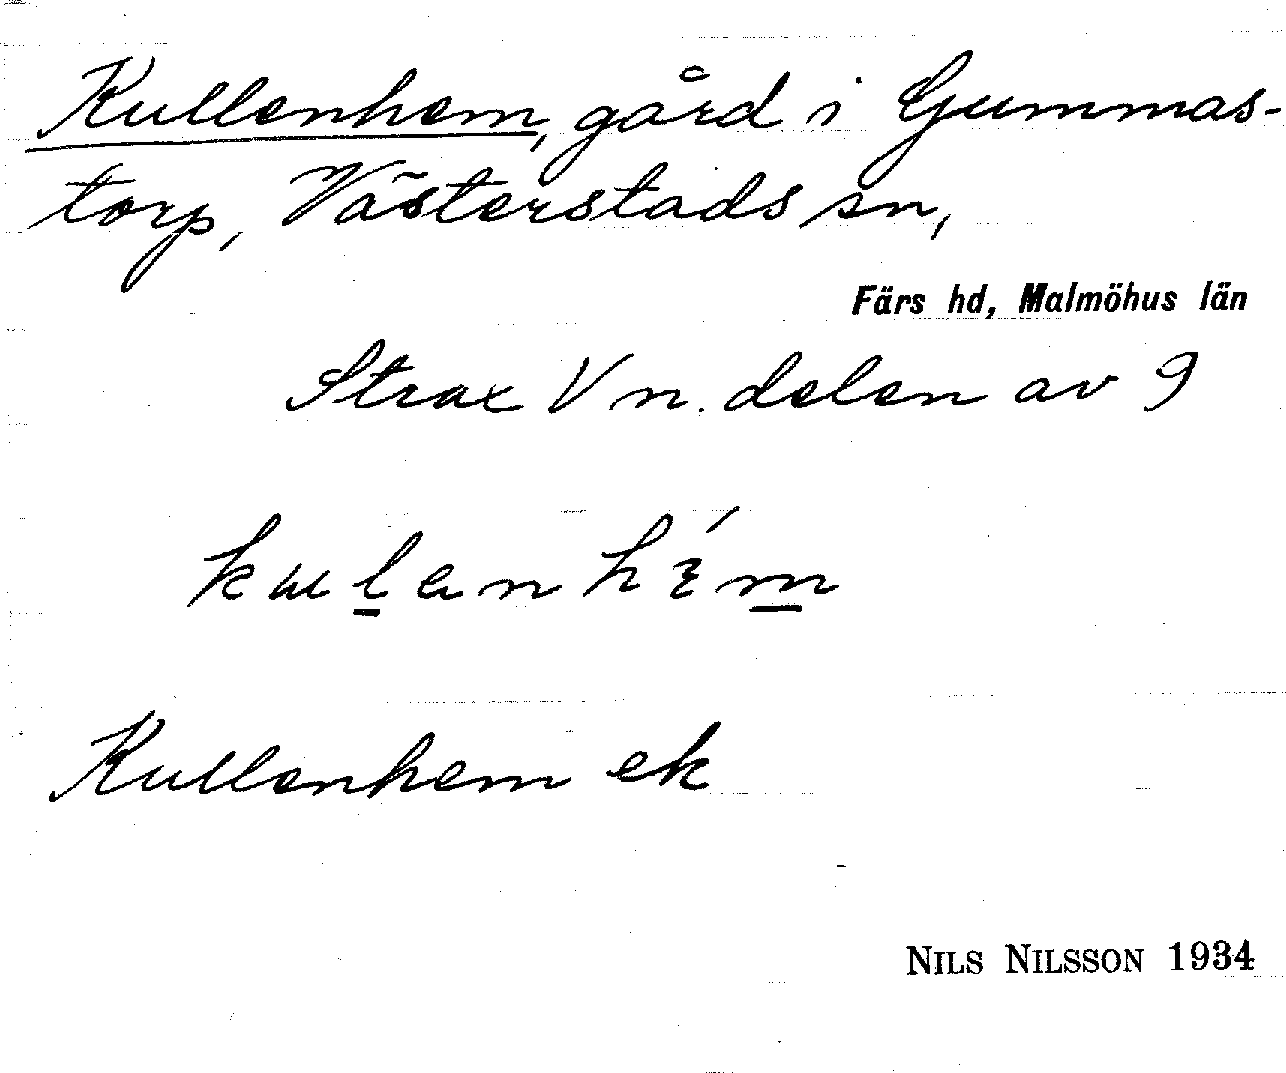 Kullenhem, gård i Gummas-
torp, Västerstads sn,
Färs hd, Malmöhus län
Strax V n. delen av 9
Kullenhem ek
NILS NILSSON 1934